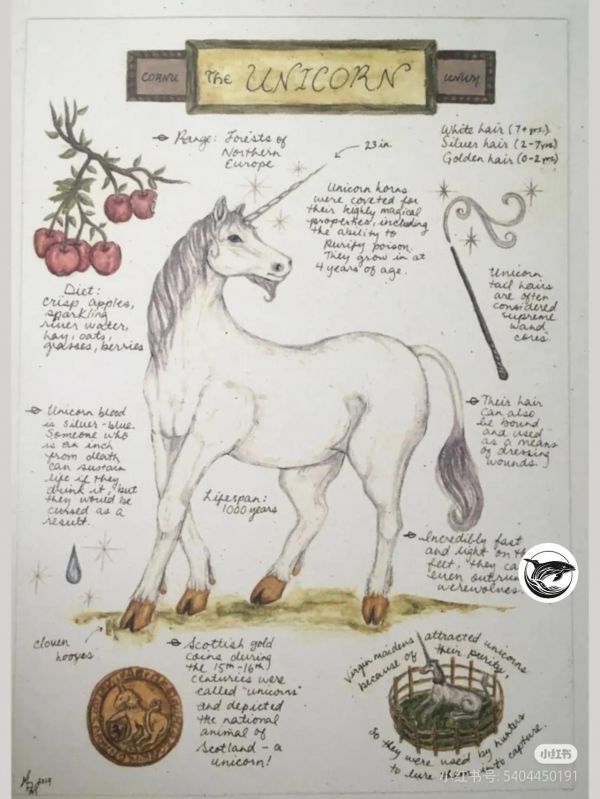 CORNU
The UNICORN
Range: Forests of
Northern
Europe
23 in.
White hair (7+ yrs.)
Silver hair (2-7 yrs)
Golden hair (0-2 yrs)
Unicorn horns
were coveted for
their highly magical
properties, including
the ability to
purify poison.
They grow in at
4 years of age.
Unicorn
tail hairs
are often
considered
supreme
wand
cores.
Diet:
crisp apples,
sparkling
river water,
hay, oats,
grasses, berries
Unicorn blood
is silver-blue.
Someone who
is an inch
from death
can sustain
life if they
drink it, but
they would be
cursed as a
result.
Their hair
can also
be bound
and used
as a means
of dressing
wounds.
Lifespan:
1000 years
Incredibly fast
and light on
feet, they
even outrun
werewolves.
cloven
hooves
Scottish gold
coins during
the 15th-16th
centuries were
called "unicorns"
and depicted
the national
animal of
Scotland - a
unicorn!
Virgin maidens attracted unicorns
because of their purity,
so they were used by hunters
to lure them into capture.
2019
小红书
小红书号: 5404450191